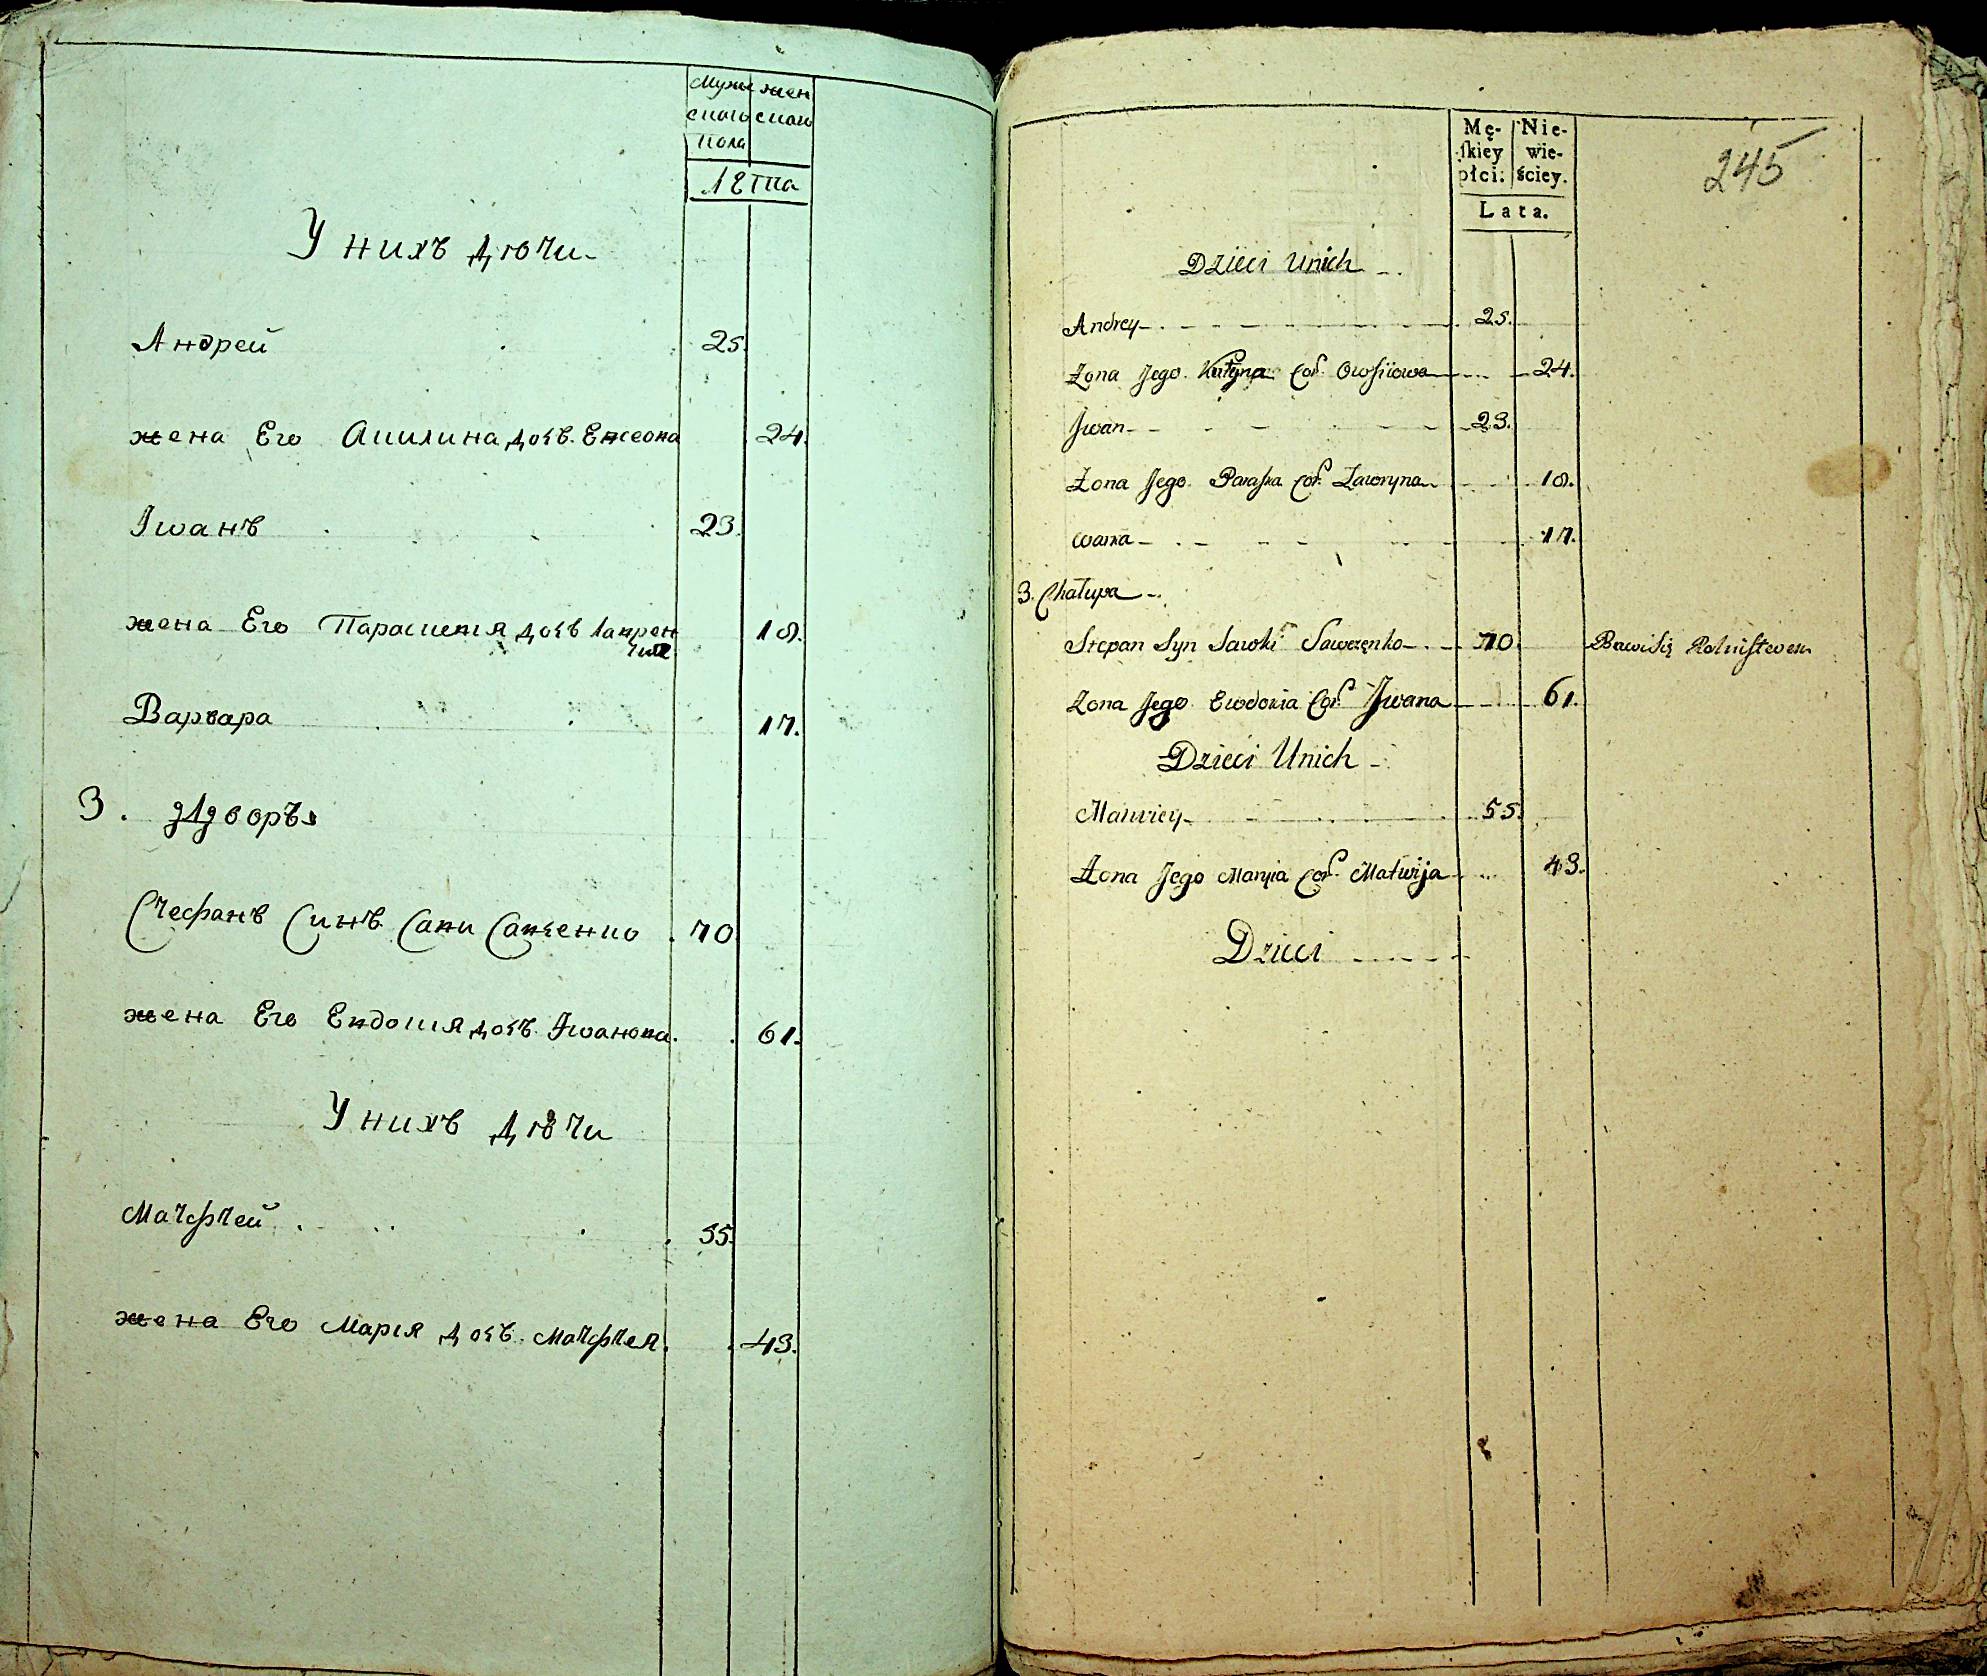 Мужескаго Женскаго
Пола
Лета
У нихъ дѣти
Андрей 25.
жена Его Акилина дочь Евсеова 24.
Иванъ 23.
жена Его Параскевия дочь Лаврен 18.
Варвара 17.
3. Дворъ
Стефанъ Синъ Сави Савченко 70
жена Его Евдокия дочь Иванова 61.
У нихъ дѣти
Матфтей 55.
жена Его Марія дочь Матфтея 43.
245
Mę- Nie-
ſkiey wie-
płci. ściey.
Lata.
Dzieci Unich
Andrey 25.
Zona Jego Cor. Owsiiowa 24.
Jwan 23.
Zona Jego Paraska Cor. Lawryna 18.
warka 17.
3. Chałupa
Stepan Syn Sawki Sawczęnko 70 Bawi Się Rolnistwem
Zona Jego Ewdokia Cor. Jwana 61.
Dzieci Unich
Matwiey 55.
Zona Jego Maryia Cor. Matwija 43.
Dzieci